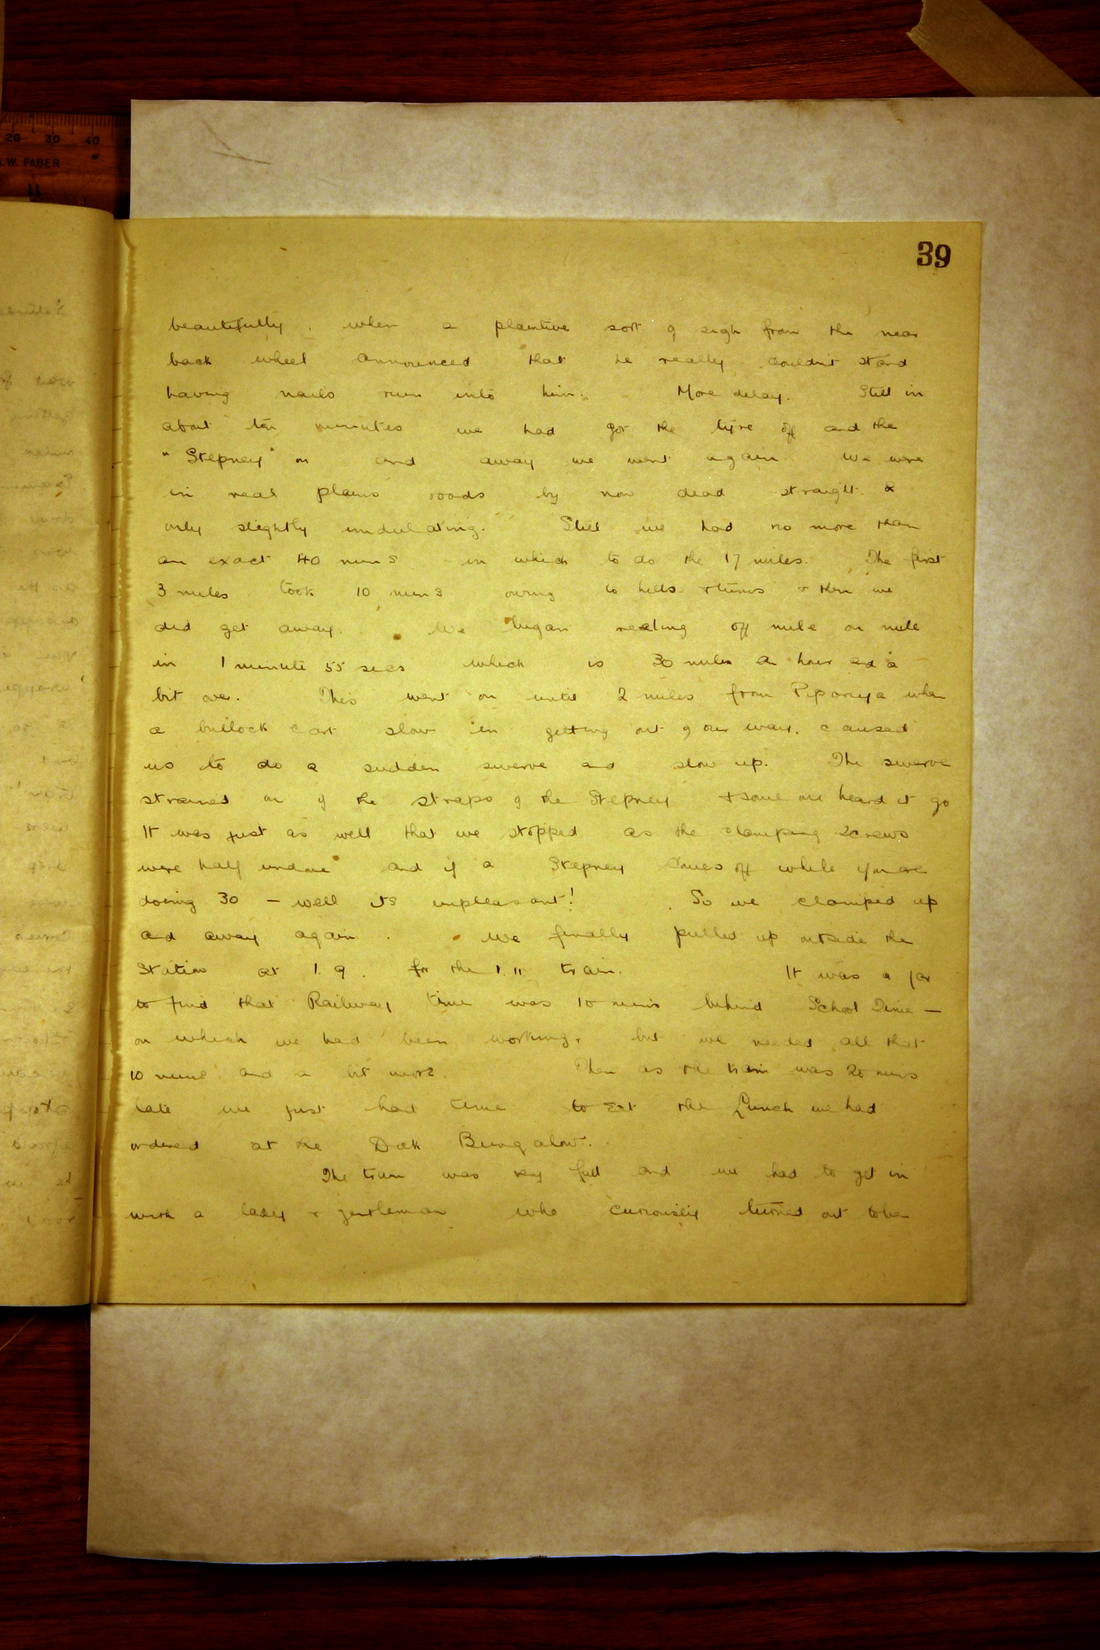 20 30 40
W. FABER
39
beautifully, when a plaintive sort of sigh from the near
back wheel announced that he really couldn't stand
having nails run into him. More delay. Still in
about ten minutes we had got the tyre off and the
"Stepney" on and away we went again. We were
in real plains roads by now dead straight &
only slightly undulating. Still we had no more than
an exact 40 mins in which to do the 17 miles. The first
3 miles took 10 mins owing to hills & turns & then we
did get away. We began reeling off mile on mile
in 1 minute 55 secs which is 30 miles an hour and a
bit over. This went on until 2 miles from Pipariya when
a bullock cart slow in getting out of our way, caused
us to do a sudden swerve and slow up. The swerve
strained on of the straps of the Stepney & some one heard it go
It was just as well that we stopped as the clamping screws
were half undone and if a Stepney comes off while you are
doing 30 — well its unpleasant! So we clamped up
and away again. We finally pulled up outside the
Station at 1.9. for the 1.11 train. It was a jar
to find that Railway time was 10 mins behind School Time —
on which we had been working, but we needed all that
10 mins and a bit more. Then as the train was 20 mins
late we just had time to eat the Lunch we had
ordered at the Dak Bungalow.
The train was very full and we had to get in
with a lady & gentleman who curiously turned out to be